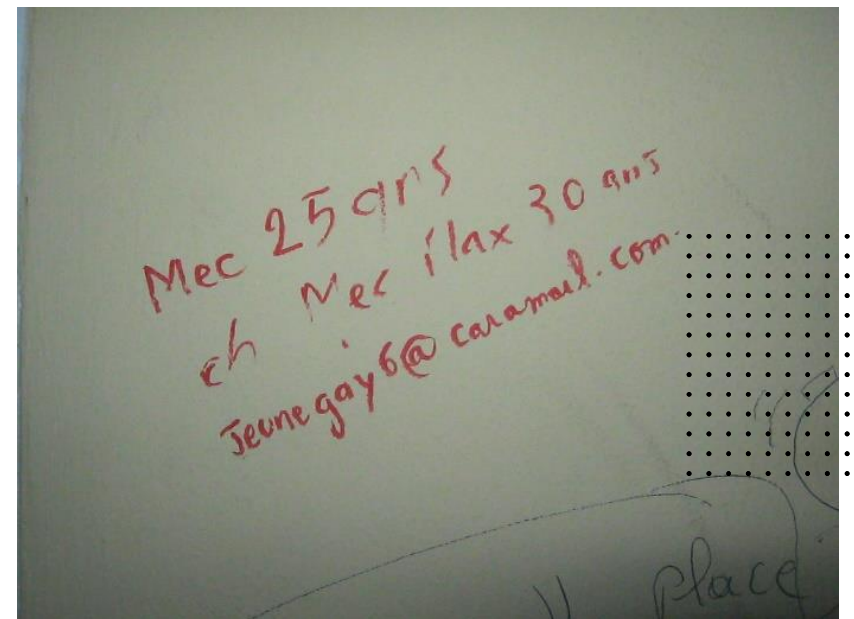 Mec 25 ans
ch Mec ilax 30 ans
Jeunegay6@caramail.com
place